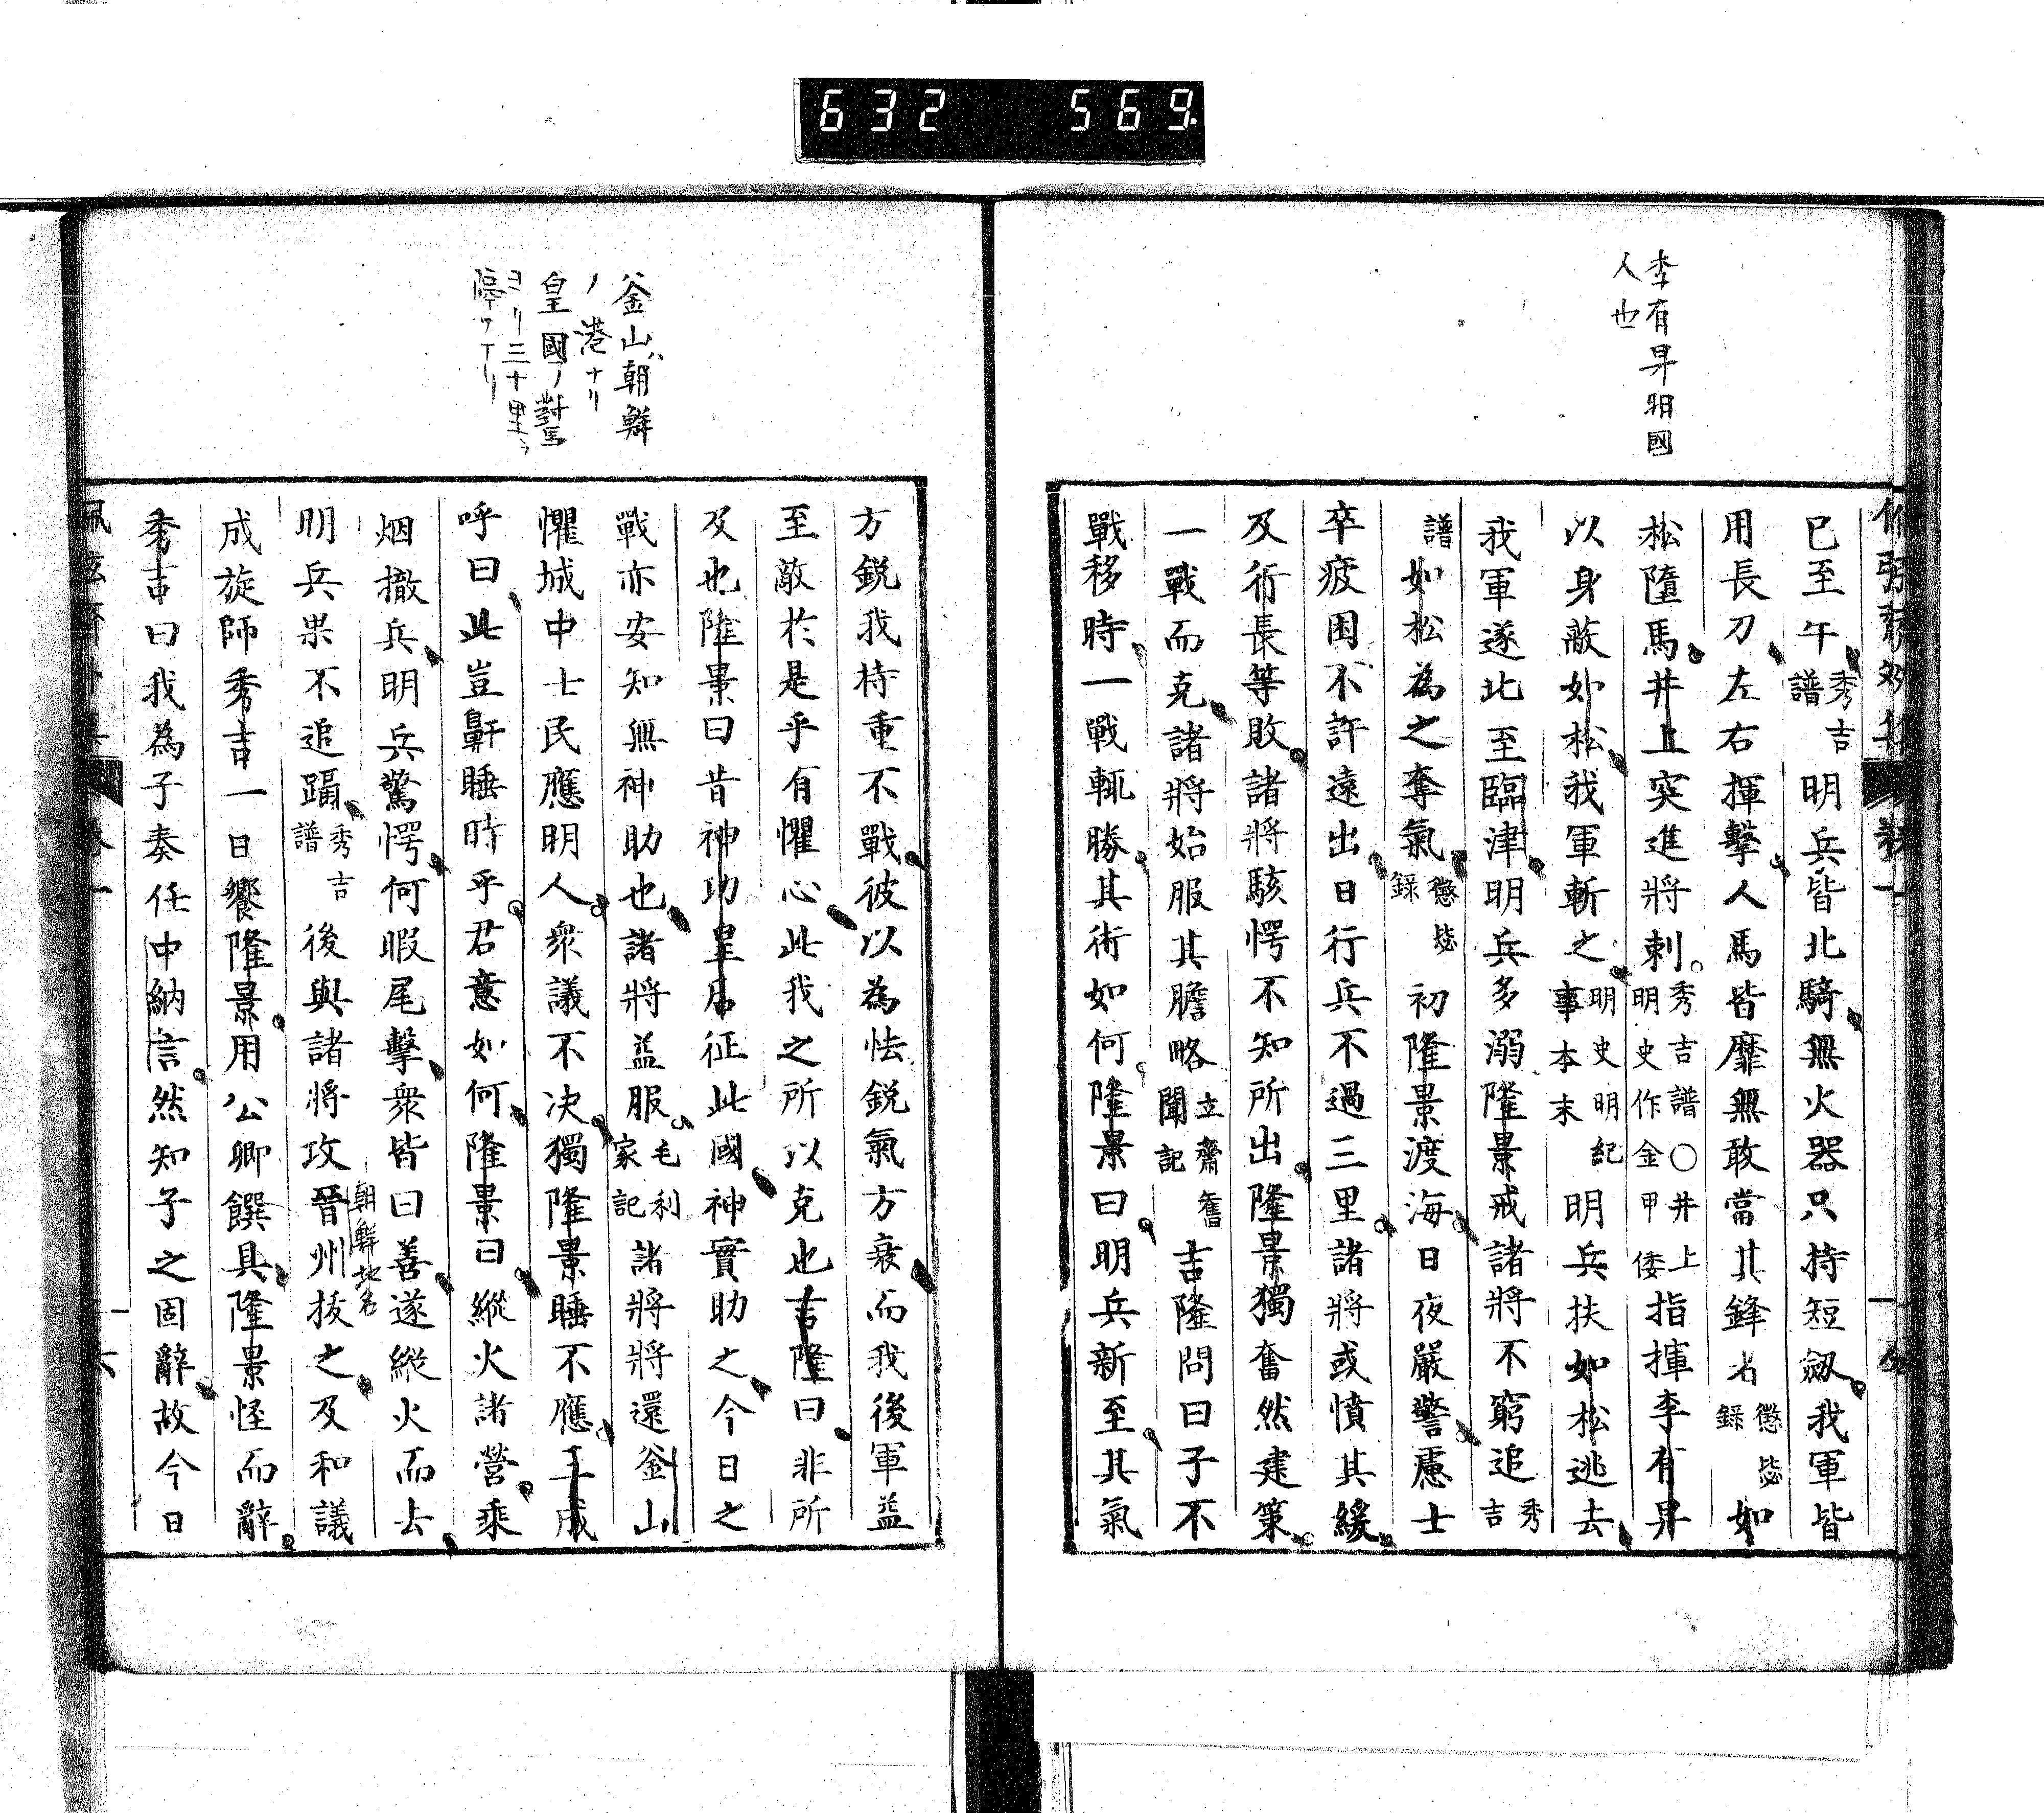 632 569.
李有昇明國
人也
巳至午秀吉譜明兵皆北騎無火器只持短劔我軍皆
用長刀左右揮擊人馬皆靡無敢當其鋒者懲毖錄如
松墮馬井上突進將刺秀吉譜○井上明史作金甲倭指揮李有昇
以身蔽如松我軍斬之明史明紀事本末明兵扶如松逃去
我軍遂北至臨津明兵多溺隆景戒諸將不窮追秀吉
譜如松為之奪氣懲毖錄初隆景渡海日夜嚴警慮士
卒疲困不許遠出日行兵不過三里諸將或憤其緩
及行長等敗諸將駭愕不知所出隆景獨奮然建策
一戰而克諸將始服其膽略立齋舊聞記吉隆問曰子不
戰移時一戰輒勝其術如何隆景曰明兵新至其氣
釜山ハ朝鮮
ノ港ナリ
皇國ノ對馬
ヨリ三十里ヲ
方銳我持重不戰彼以為怯銳氣方衰而我後軍益
至敵於是乎有懼心此我之所以克也吉隆曰非所
及也隆景曰昔神功皇后征此國神實助之今日之
戰亦安知無神助也諸將益服毛利家記諸將將還釜山
懼城中士民應明人眾議不决獨隆景睡不應三成
呼曰此豈鼾睡時乎君意如何隆景曰縱火諸營乘
烟撤兵明兵驚愕何暇尾擊眾皆曰善遂縱火而去
明兵果不追躡秀吉譜後與諸將攻晉州朝鮮地名拔之及和議
成旋師秀吉一日饗隆景用公卿饌具隆景怪而辭
秀吉曰我為子奏任中納言然知子之固辭故今日